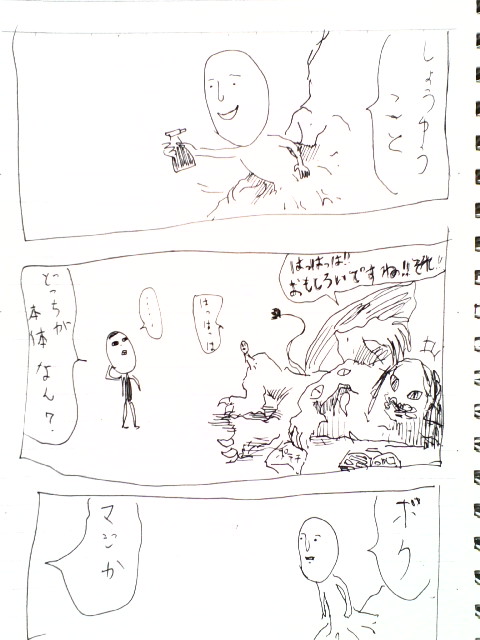 しょうゆう
こと
はっはっは!!
おもしろいですね!!それ!!
はっはっは
……
どっちが
本体なん?
ボク
マジか